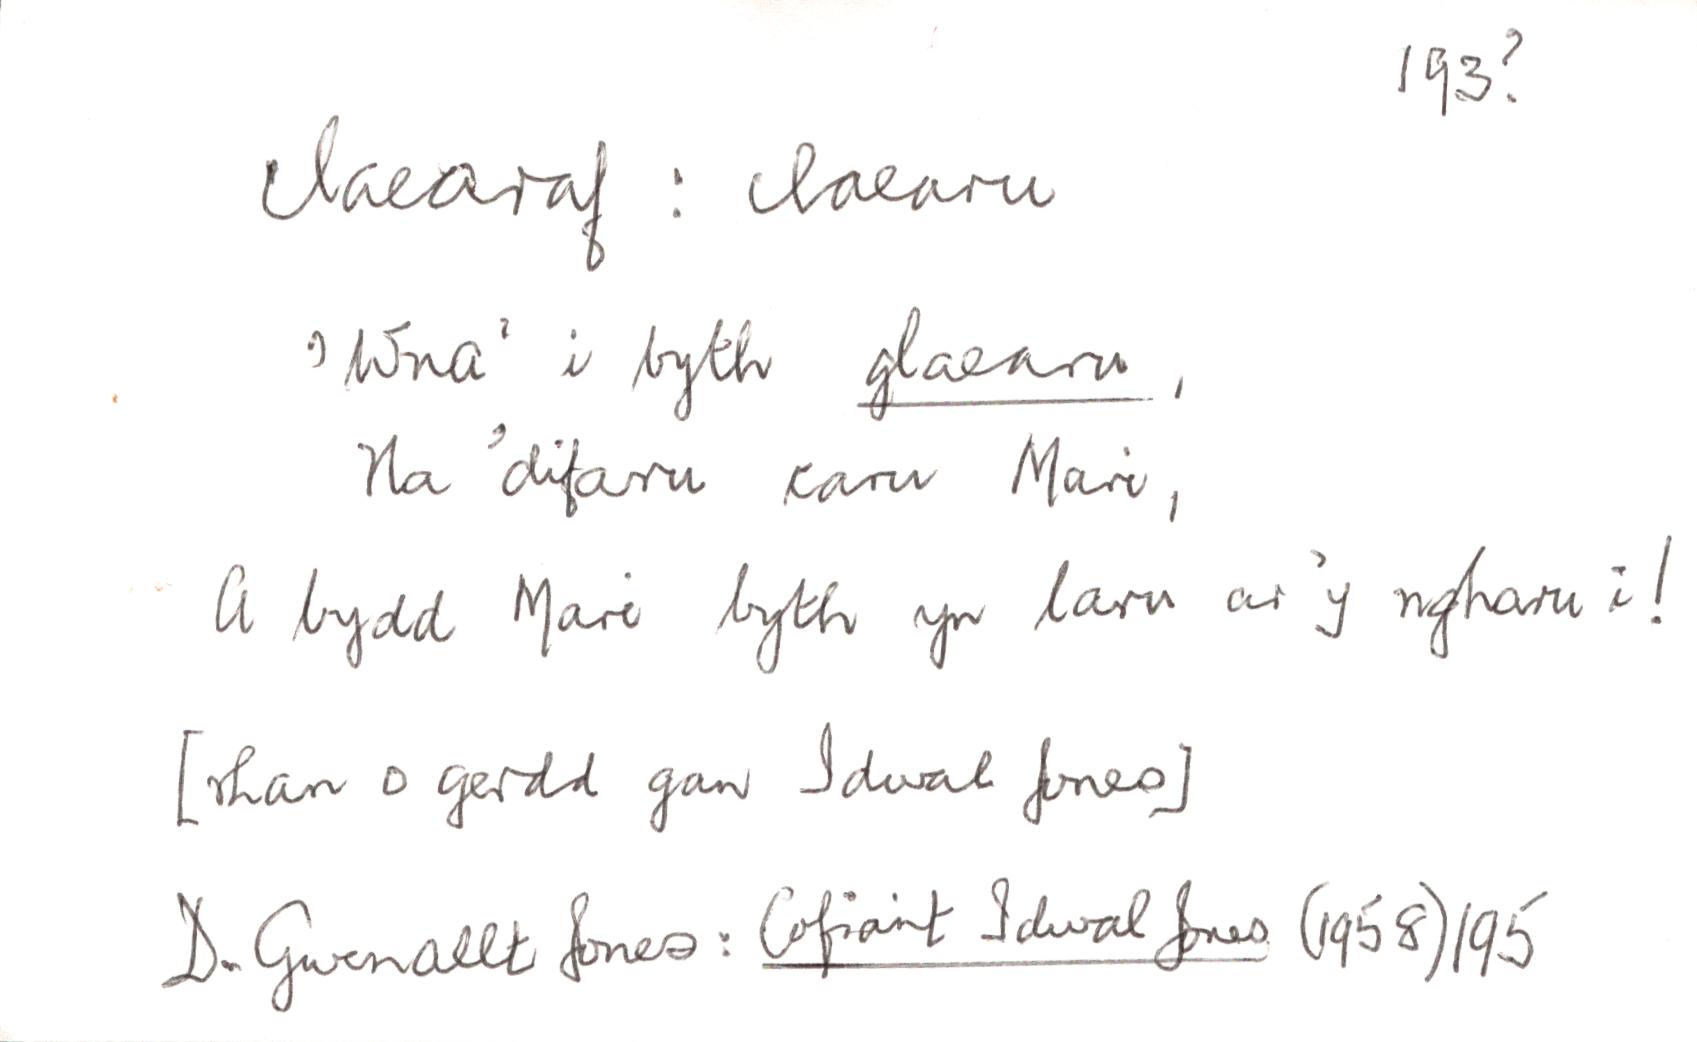 193?
claearaf : claearu
'Wna' i byth glaearu,
Na 'difaru caru Mari,
A bydd Mari byth yn laru ar 'y ngharu i!
[rhan o gerdd gan Idwal Jones]
D. Gwenallt Jones: Cofiant Idwal Jones (1958) 195